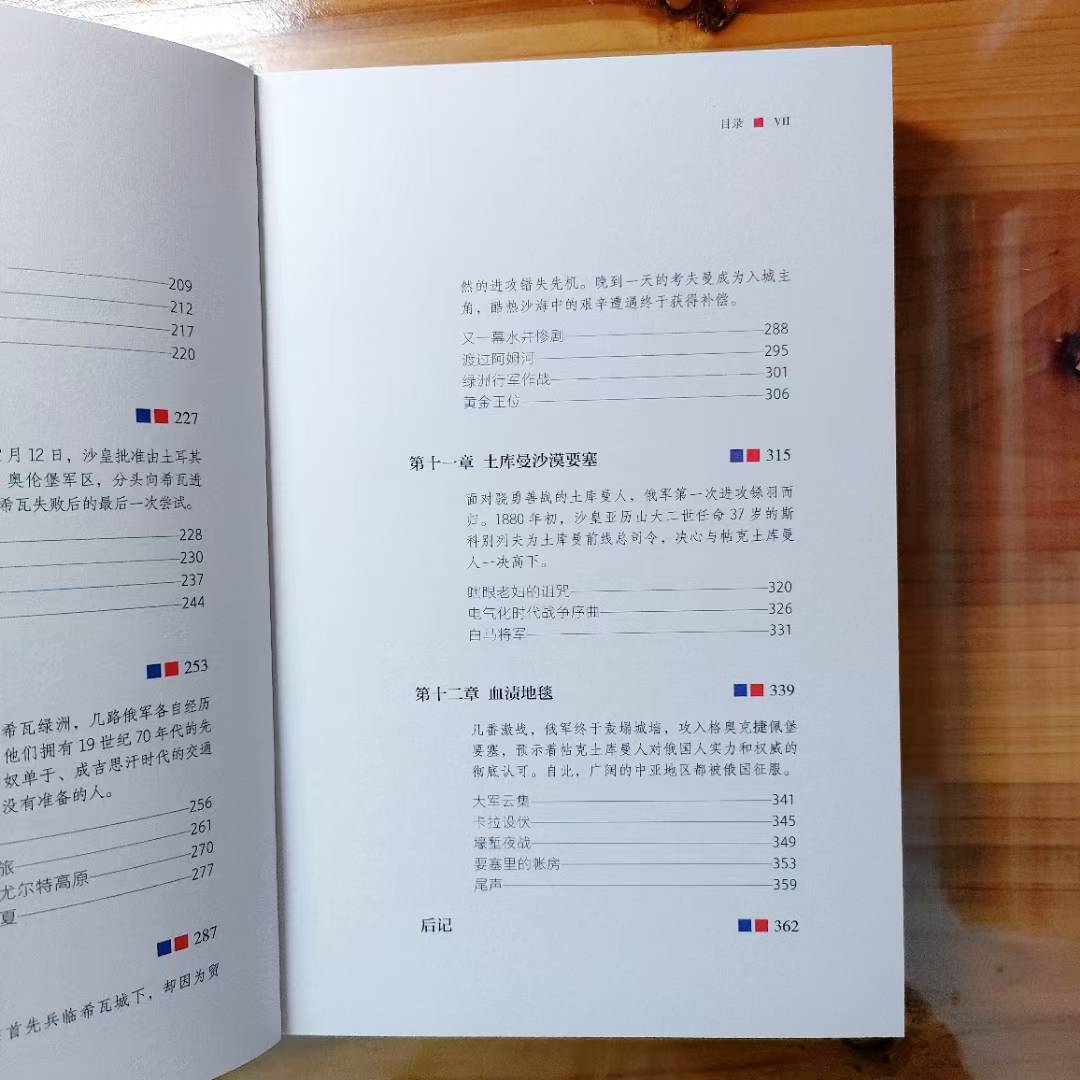 209
212
217
220
227
月12日，沙皇批准由土耳其
奥伦堡军区，分头向希瓦进
希瓦失败后的最后一次尝试。
228
230
237
244
253
希瓦绿洲，几路俄军各自经历
他们拥有19世纪70年代的先
奴单于、成吉思汗时代的交通
没有准备的人。
256
旅 261
尤尔特高原 270
夏 277
287
首先兵临希瓦城下，却因为贸
目录 VII
然的进攻错失先机。晚到一天的考夫曼成为入城主
角，酷热沙海中的艰辛遭遇终于获得补偿。
又一幕水井惨剧 288
渡过阿姆河 295
绿洲行军作战 301
黄金王位 306
第十一章 土库曼沙漠要塞 315
面对骁勇善战的土库曼人，俄军第一次进攻铩羽而
归。1880年初，沙皇亚历山大二世任命37岁的斯
科别列夫为土库曼前线总司令，决心与帖克土库曼
人一决高下。
瞎眼老妇的诅咒 320
电气化时代战争序曲 326
白马将军 331
第十二章 血渍地毯 339
几番激战，俄军终于轰塌城墙，攻入格奥克捷佩堡
要塞，预示着帖克土库曼人对俄国人实力和权威的
彻底认可。自此，广阔的中亚地区都被俄国征服。
大军云集 341
卡拉设伏 345
壕堑夜战 349
要塞里的帐房 353
尾声 359
后记 362